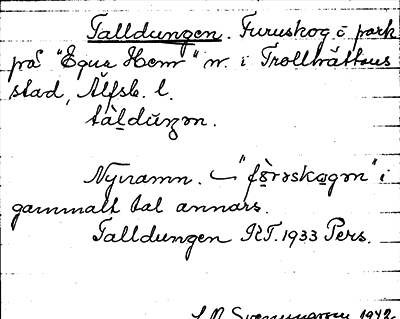 Talldungen. Furuskog i park
på "Egna Hem" n. i Trollhättans
stad, Älfsb. l.
tàldúŋən.
Nynamn. "fø̀rəskogən" i
gammalt tal annars.
Talldungen RT. 1933 Pers.
1942.